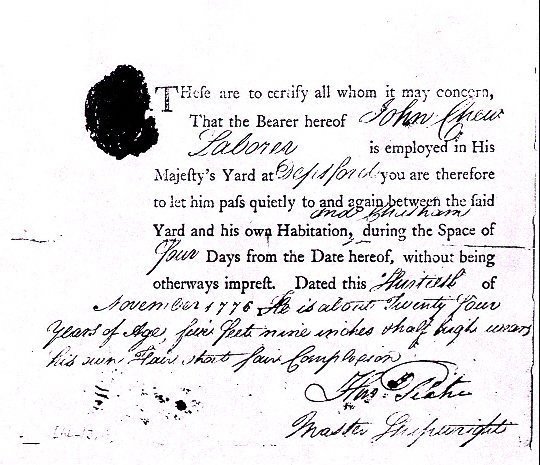 THese are to certify all whom it may concern,
That the Bearer hereof John Chew
Laborer is employed in His
Majesty's Yard at Depsford you are therefore
to let him pass quietly to and again between the said
and Chesham
Yard and his own Habitation, during the Space of
Four Days from the Date hereof, without being
otherways imprest. Dated this Thirtieth of
November 1776 He is about Twenty four
Years of Age, four feet nine inches & half high wears
his own Hair short fair Complexion
Thos
Master Shipwright